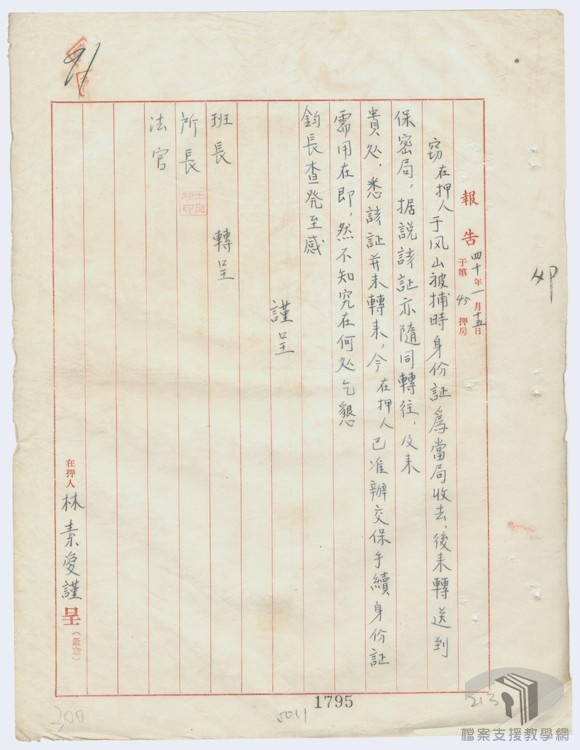 報告 四十年一月十五日
于第45押房
竊在押人于风山被捕時身份証為當局收去，後来轉送到
保密局，据說該証亦隨同轉往，及来
貴处，悉該証并未轉来，今在押人已准辦交保手續身份証
需用在即，然不知究在何处乞懇
鈞長查発至感
謹呈
班長
所長 轉呈
法官
在押人 林素愛謹呈（蓋章）
91
1795
5011
213
300
檔案支援教學網